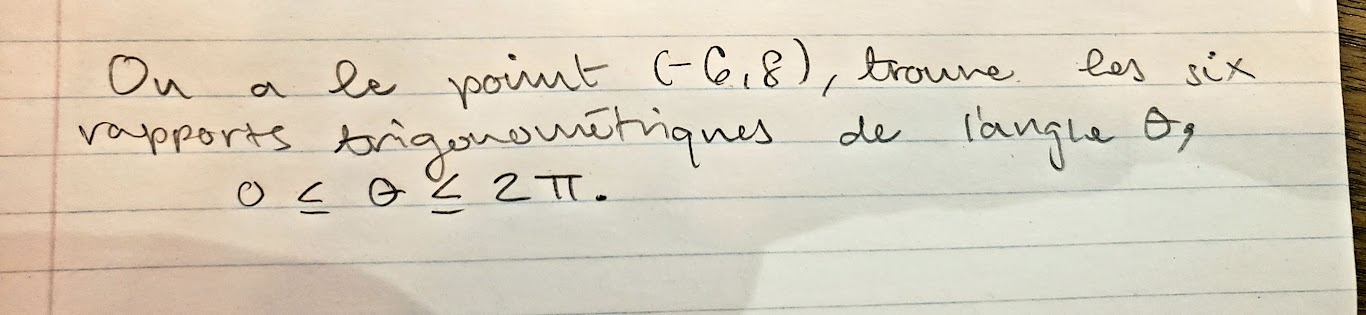 On a le point (-6,8), trouve les six
rapports trigonométriques de l'angle θ,
0 ≤ θ ≤ 2π.